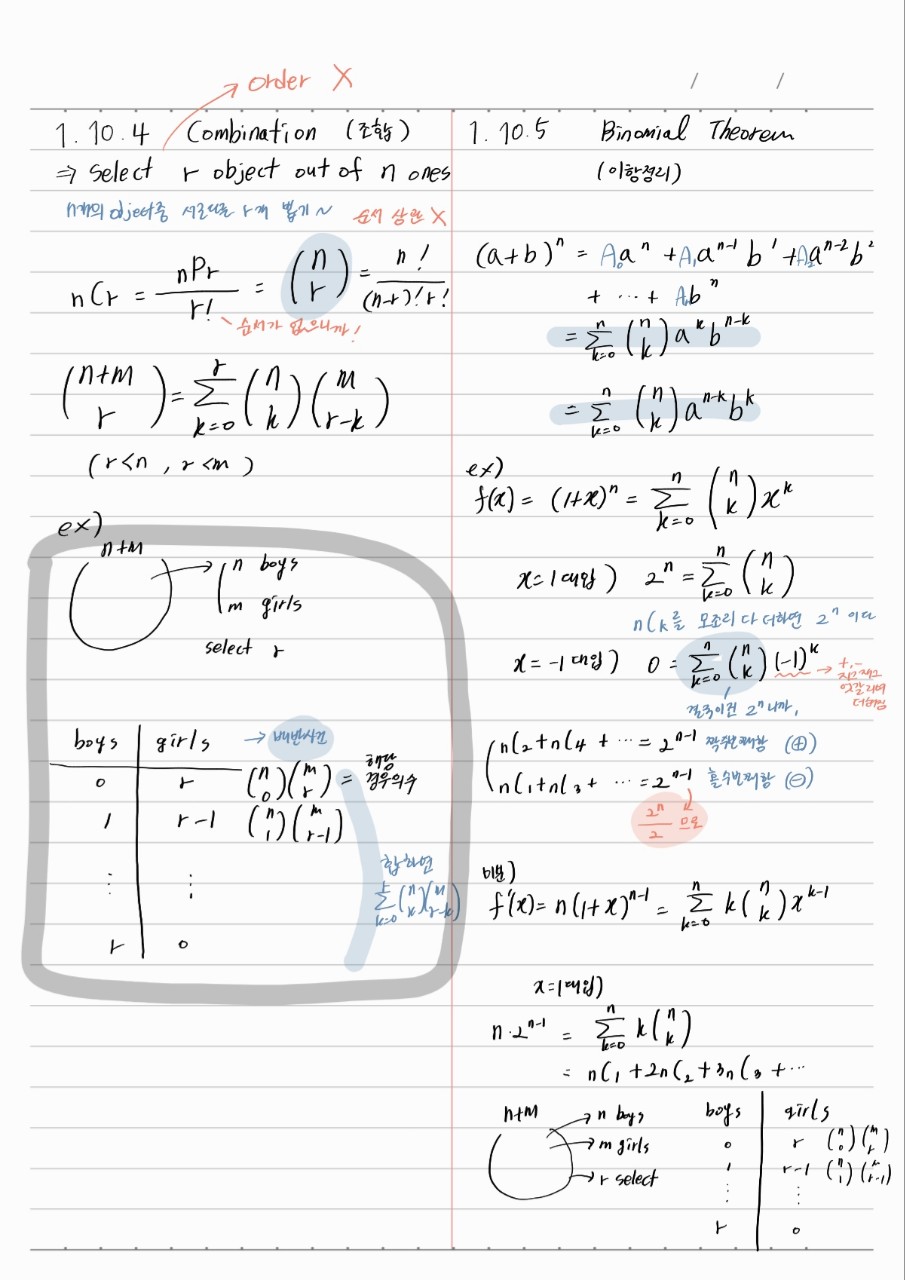 order X
1.10.4 Combination (조합)
⇒ select r object out of n ones
n개의 object중 서로다른 r개 뽑기~ 순서 상관 X
nCr = nPr / r! = (n r) = n! / (n-r)! r!
순서가 없으니까!
(n+m r) = Σ_{k=0}^{r} (n k)(m r-k)
(r<n, r<m)
ex)
n+m
n boys
m girls
select r
boys girls → 배반사건
0 r (n 0)(m r) = 해당 경우의수
1 r-1 (n 1)(m r-1)
⋮ ⋮
합하면
Σ_{k=0}^{r} (n k)(m r-k)
r 0
/ /
1.10.5 Binomial Theorem
(이항정리)
(a+b)^n = A₀a^n + A₁a^{n-1}b^1 + A₂a^{n-2}b^2
+ ⋯ + Aₙb^n
= Σ_{k=0}^{n} (n k) a^k b^{n-k}
= Σ_{k=0}^{n} (n k) a^{n-k} b^k
ex)
f(x) = (1+x)^n = Σ_{k=0}^{n} (n k) x^k
x=1 대입) 2^n = Σ_{k=0}^{n} (n k)
nCk를 모조리 다 더하면 2^n 이다
x=-1 대입) 0 = Σ_{k=0}^{n} (n k) (-1)^k → +,-
엇갈리며
더해짐
결국이건 2^n니까,
nC2+nC4 + ⋯ = 2^{n-1} 짝수번째항 (+)
nC1+nC3 + ⋯ = 2^{n-1} 홀수번째항 (-)
2^n / 2 므로
미분)
f'(x) = n(1+x)^{n-1} = Σ_{k=0}^{n} k (n k) x^{k-1}
x=1 대입)
n·2^{n-1} = Σ_{k=0}^{n} k (n k)
= nC1 + 2nC2 + 3nC3 + ⋯
n+m → n boys
→ m girls
→ r select
boys girls
0 r (n 0)(m r)
1 r-1 (n 1)(r r-1)
⋮ ⋮
r 0